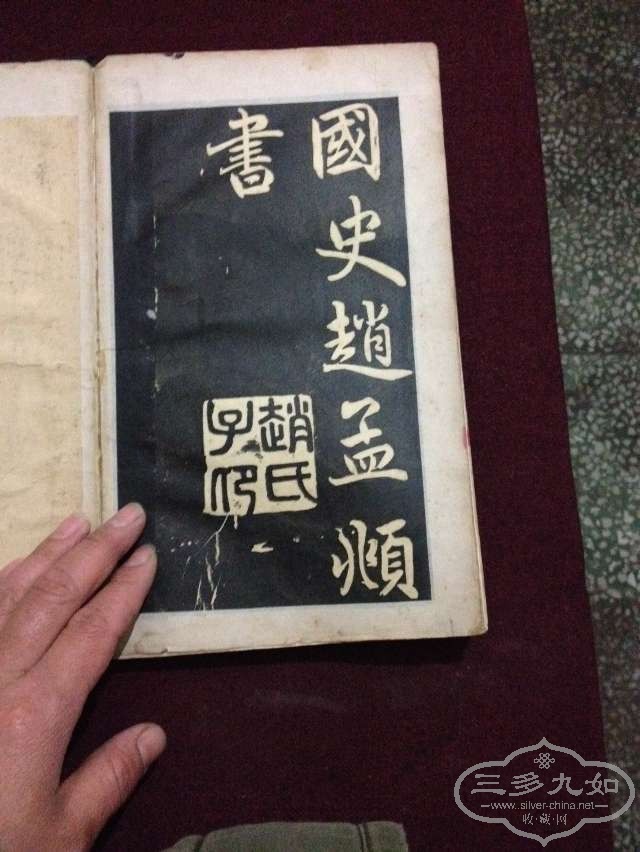 國史趙孟頫
書
趙氏
子印
三多九如
www.silver-china.net
收·藏·网